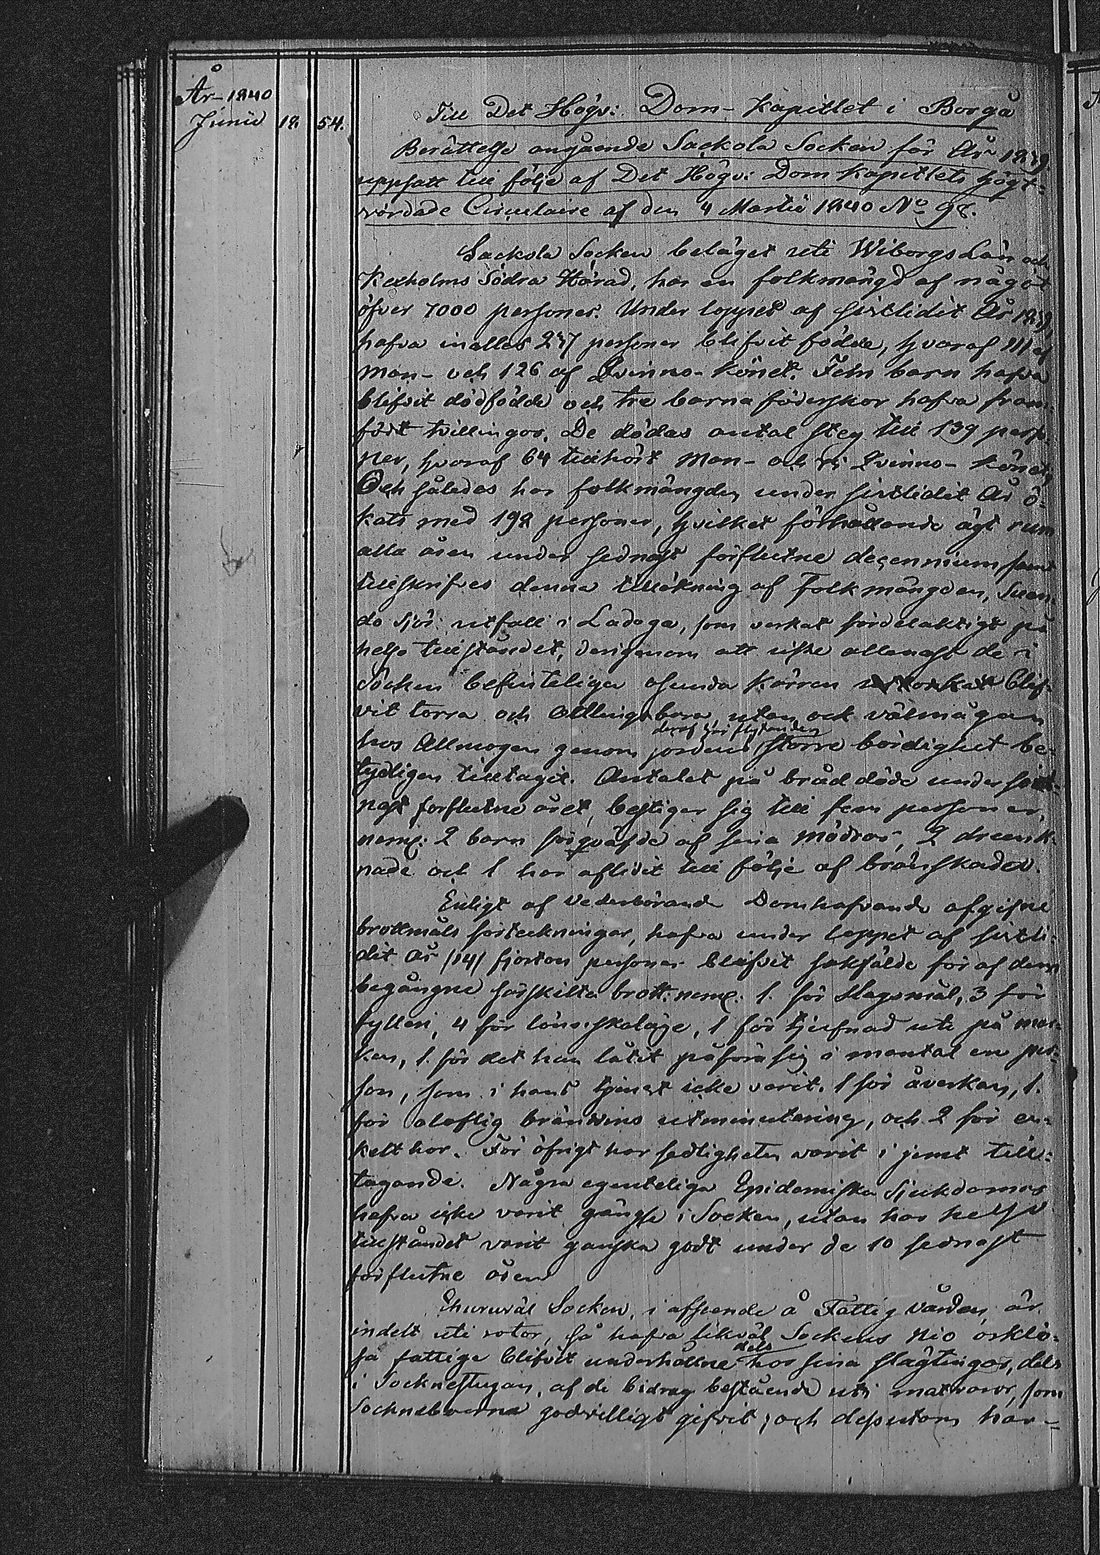 År 1840
Junii 18 54.
Till Det Högv: Dom-Kapitlet i Borgå
Berättelse angående Sackola Socken för År 1839
uppsatt till följe af Det Högv: Dom Kapitlets högt-
vördade Circulaire af den 4 Martii 1840 No 98.
Sackola Socken beläget uti Wiborgs Län och
Kexholms Södra Härad, har en folkmängd af något
öfver 7000 personer. Under loppet af sistlidit År 1839,
hafva inalles 237 personer blifvit födde, hvaraf 111 af
Man- och 126 af Qvinno-könet. Fem barn hafva
blifvit dödfödde och tre barnaföderskor hafva fram-
födt tvillingar. De dödas antal steg till 139 perso-
ner, hvaraf 64 tillhört Man- och Qvinno-könet,
Och således har folkmängden under sistlidit År ö-
kats med 198 personer, hvilket förhållande ägt rum
alla åren under sednast förflutne decennium samt
tillskrifves denna tillökning af Folkmängden, Suvan-
do Sjös utfall i Ladoga, som verkat fördelaktigt på
helso tillståndet, derigenom att icke allenast de i
Socken befinteliga osunda kärren blif-
vit torra och odlingsbara, utan ock välmågan
hos Allmogen genom jordens deraf härflytande större bördighet be-
tydligen tilltagit. Antalet på bråd döde under sed-
nast förflutne året, bestiger sig till fem personer,
neml: 2 barn förqväfde af sina mödrar, 2 drunk-
nade och 1 har aflidit till följe af brånskador.
Enligt af Vederbörande Domhafvande afgifne
brottmåls förteckningar, hafva under loppet af sistli-
dit År /14/ fjorton personer blifvit sakfälde för af dem
begångne särskilta brott: neml: 1 för slagsmål, 3 för
fylleri, 4 för lönskaläge, 1 för tjufnad ute på mar-
ken, 1 för det han låtit påföra sig i mantal en per-
son, som i hans tjenst icke varit, 1 för åverkan, 1
för olaflig bränvins utminutering, och 2 för en-
kelt hor. För öfrigt har sedligheten varit i jemt till-
tagande. Några egenteliga Epidemiska Sjukdomar
hafva icke varit gängse i Socken, utan har helso
tillståndet varit ganska godt under de 10 sednast
förflutne åren
Ehuruväl Socken, i afseende å Fattigvården, är
indelt uti rotor, så hafva likväl Sockens nio orklö-
sa fattige blifvit underhållne dels hos sina slägtingar, dels
i Socknestugan, af de bidrag bestående uti matvaror, som
Socknebarna godvilligt gifvit; och dessutom har-